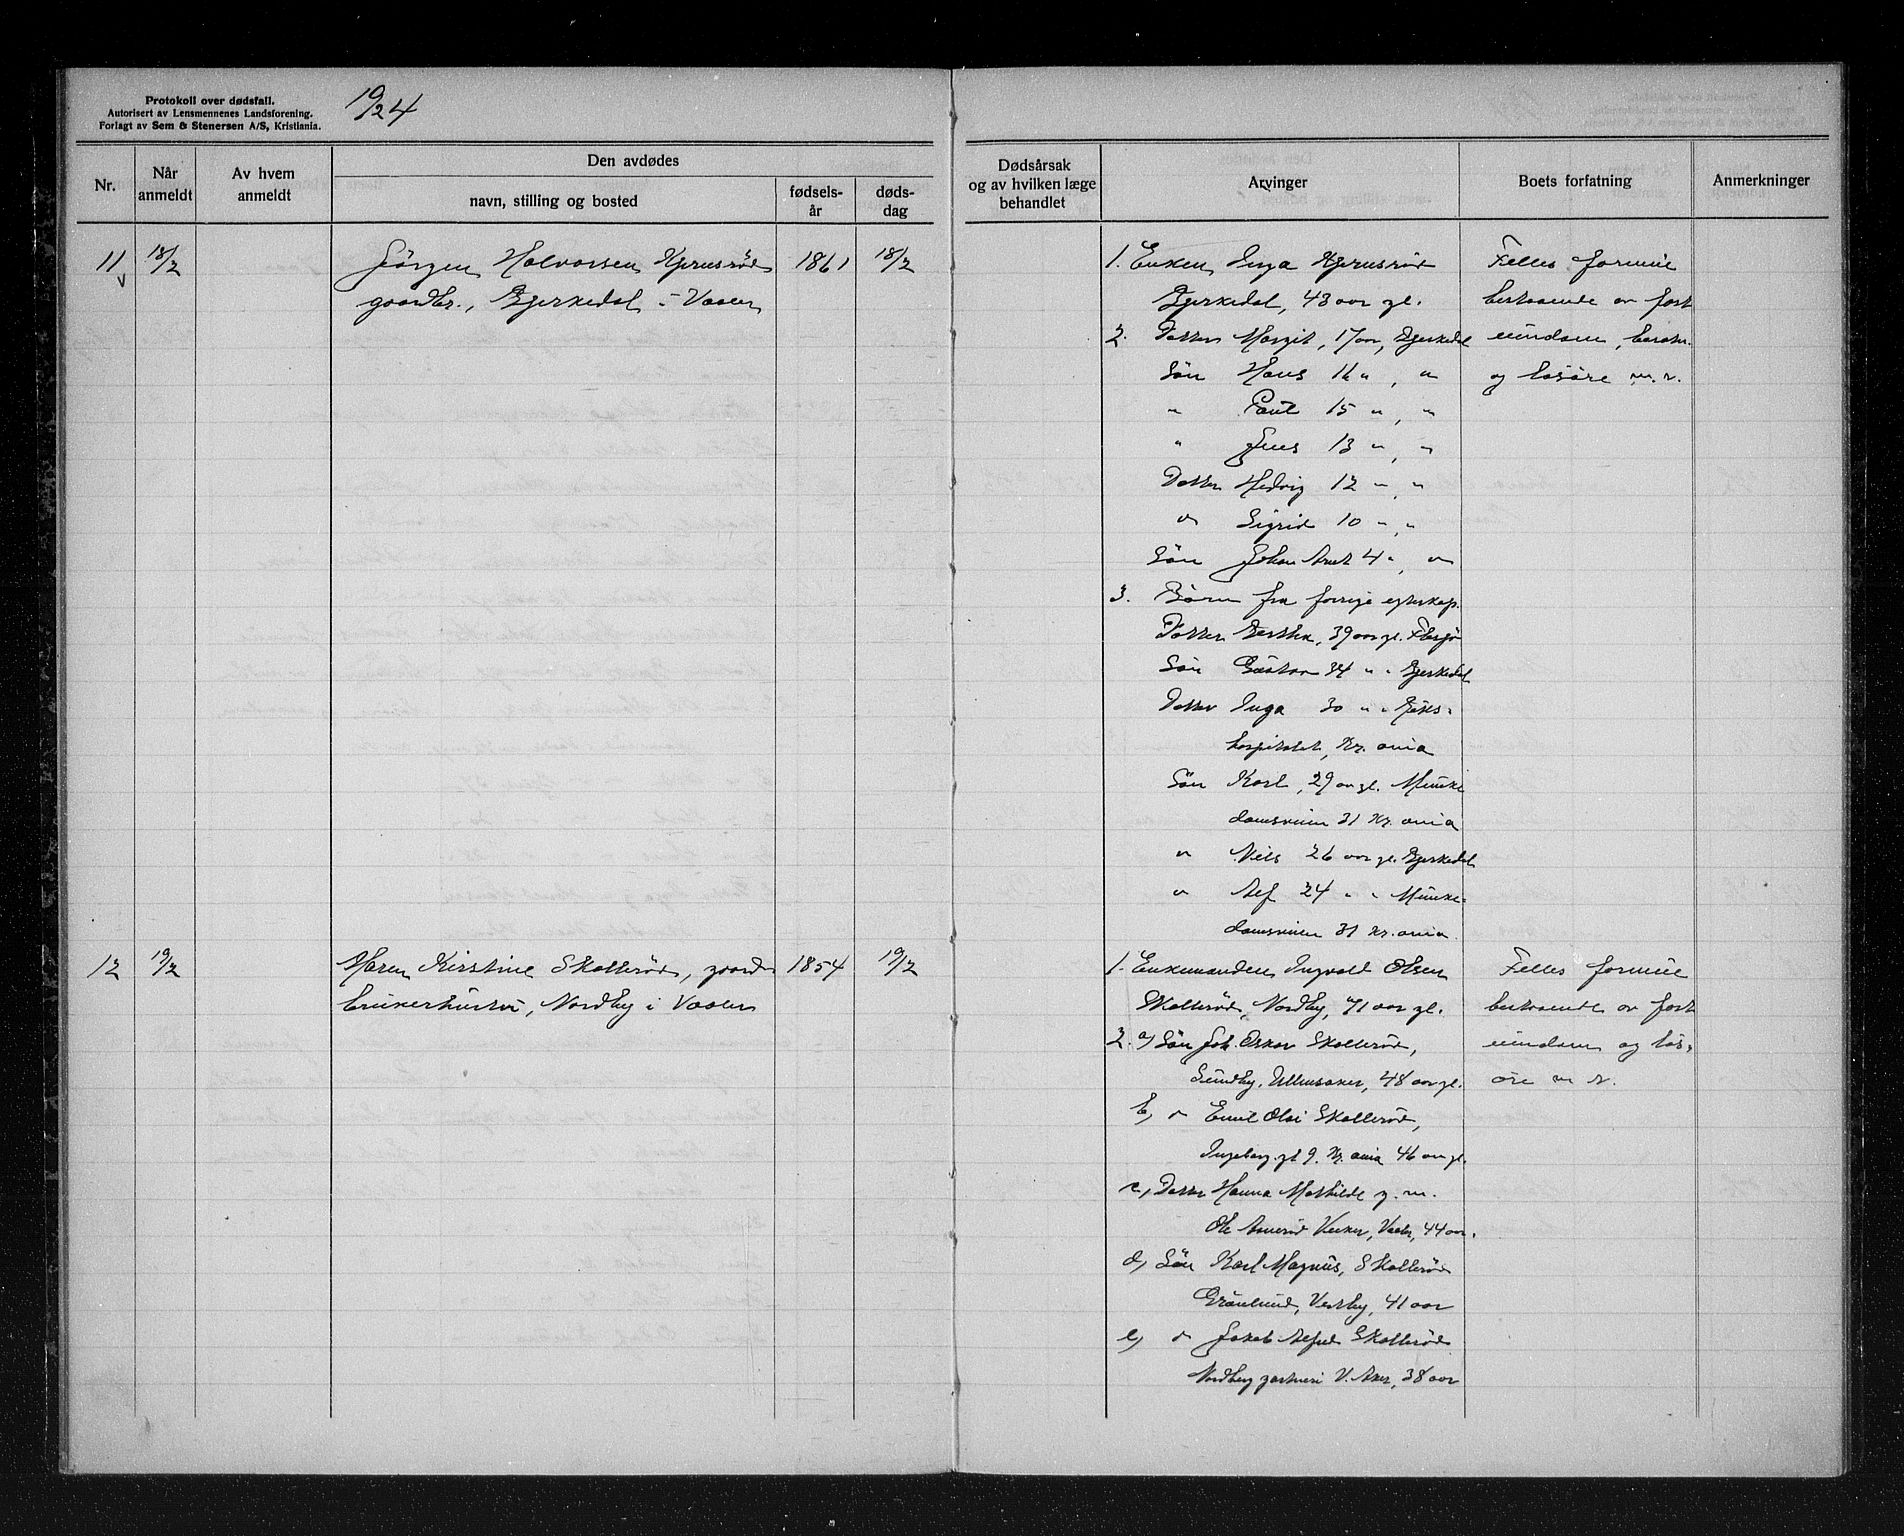 Protokoll over dødsfall.
Autorisert av Lensmennenes Landsforening.
Forlagt av Sem & Stenersen A/S, Kristiania.
1924
Nr.
Når anmeldt
Av hvem anmeldt
Den avdødes
navn, stilling og bosted
fødsels-år
døds-dag
Dødsårsak og av hvilken læge behandlet
Arvinger
Boets forfatning
Anmerkninger
11 18/2 Jörgen Halvorsen 1861 18/2
gaardbr., Bjerkedal i Vaaler
1. Enken Inga
Bjerkedal, 43 aar gl.
2. Datter Margit, 17 aar, Bjerkedal
Sön Hans 16 " , "
" Paul 15 " , "
" Jens 13 " , "
Datter Hedvig 12 " , "
" Sigrid 10 " , "
Sön Johan 4 " , "
3. Börn fra forrige egteskap.
Datter 39 aar gl.
Sön Gustav 34 " " Bjerkedal
Datter Inga 30 " "
hospitalet, Kr.ania
Sön Karl, 29 aar gl. Munke
damsveien 31 Kr.ania
" Nils 26 aar gl. Bjerkedal
" Alf 24 " " Munke-
damsveien 31 Kr.ania.
Felles formue
bestaaende av fast
eiendom,
og lösöre m. v.
12 19/2 Maren Kirstine Skallerød, gaard- 1854 19/2
brukerhustru, Nordby i Vaaler
1. Enkemanden Ingvald Olsen
Skallerød, Nordby, 71 aar gl.
2. a) Sön Joh. Oskar Skallerød,
Sundby, Ullensaker, 48 aar gl.
b) " Emil Olai Skallerød,
Ingeborg.gt 9. Kr.ania 46 aar gl.
c) Datter Hanna Mathilde g. m.
Ole Vaaler, 44 aar.
d) Sön Karl Magnus, Skallerød
Grönlund, Vestby, 41 aar
e) " Jakob Alfred Skallerød
Nordberg gartneri V. Aker, 38 aar
Felles formue
bestaaende av fast
eiendom og lös-
öre m v.